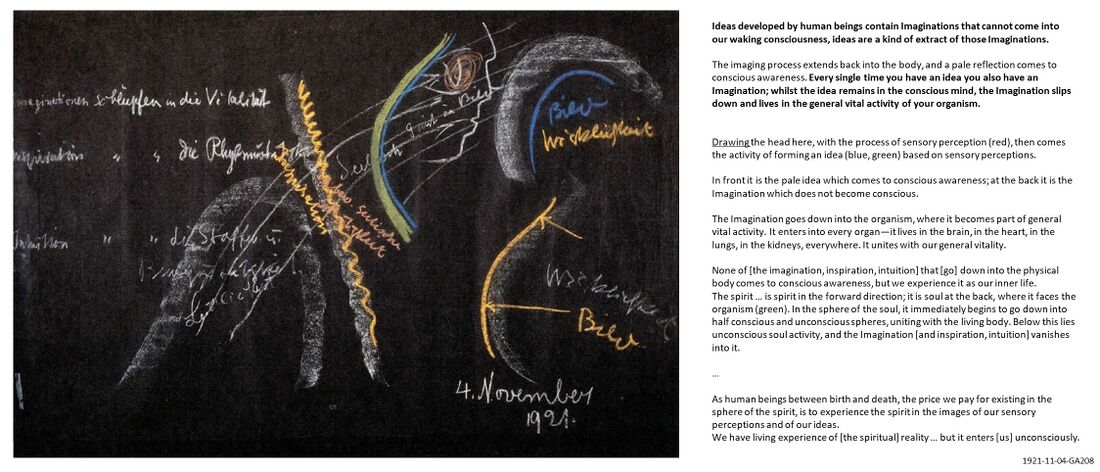 Imaginationen schlüpfen in die Vitalität
Inspiration " " die Rhythmus
Intuition " " die Stoffw. u.
Inspiration
seelische
Bild
Wirklichkeit
Wirklichkeit
Bild
4. November
1921.
Ideas developed by human beings contain Imaginations that cannot come into
our waking consciousness, ideas are a kind of extract of those Imaginations.
The imaging process extends back into the body, and a pale reflection comes to
conscious awareness. Every single time you have an idea you also have an
Imagination; whilst the idea remains in the conscious mind, the Imagination slips
down and lives in the general vital activity of your organism.
Drawing the head here, with the process of sensory perception (red), then comes
the activity of forming an idea (blue, green) based on sensory perceptions.
In front it is the pale idea which comes to conscious awareness; at the back it is the
Imagination which does not become conscious.
The Imagination goes down into the organism, where it becomes part of general
vital activity. It enters into every organ—it lives in the brain, in the heart, in the
lungs, in the kidneys, everywhere. It unites with our general vitality.
None of [the imagination, inspiration, intuition] that [go] down into the physical
body comes to conscious awareness, but we experience it as our inner life.
The spirit ... is spirit in the forward direction; it is soul at the back, where it faces the
organism (green). In the sphere of the soul, it immediately begins to go down into
half conscious and unconscious spheres, uniting with the living body. Below this lies
unconscious soul activity, and the Imagination [and inspiration, intuition] vanishes
into it.
...
As human beings between birth and death, the price we pay for existing in the
sphere of the spirit, is to experience the spirit in the images of our sensory
perceptions and of our ideas.
We have living experience of [the spiritual] reality ... but it enters [us] unconsciously.
1921-11-04-GA208